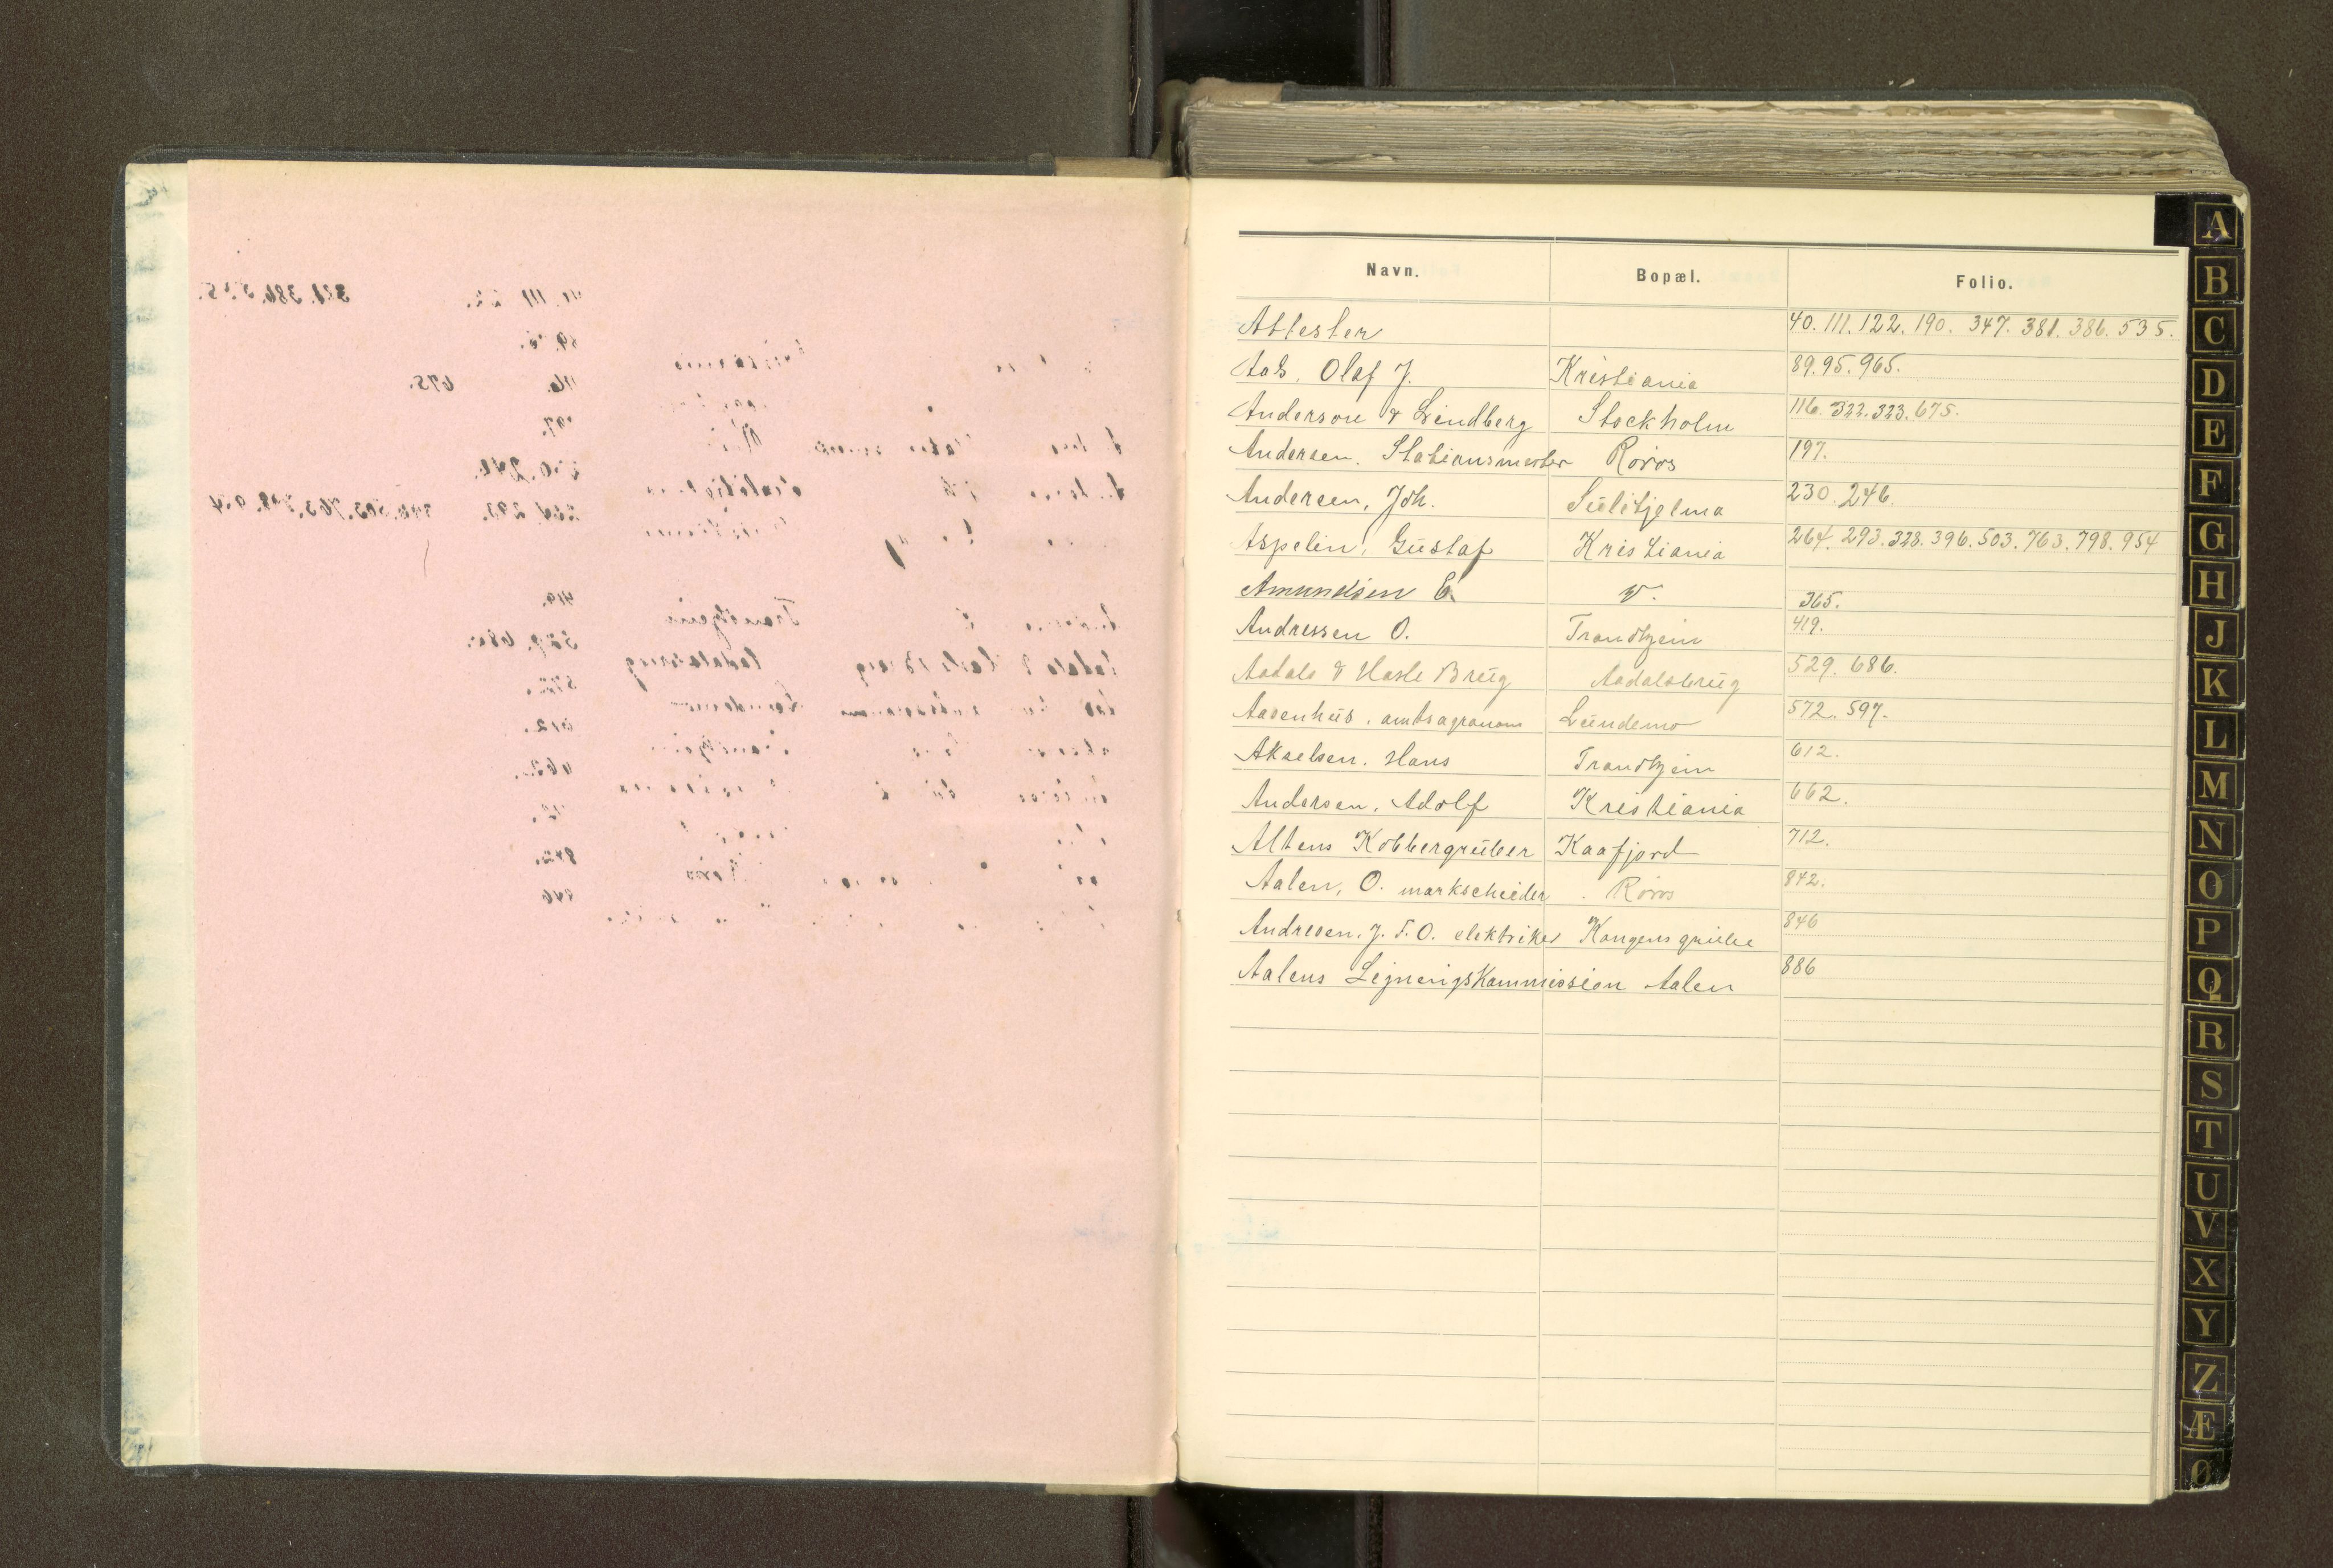 Navn. Bopæl. Folio.
Attester 40. 111. 122. 190. 347. 381. 386. 535.
Aas, Olaf J. Kristiania 89. 95. 965.
Anderson & Lindberg Stockholm 116. 322. 323. 675.
Andersen, Stationsmester Röros 197.
Andersen, Joh. Sulitjelma 230. 246.
Aspelin, Gustaf Kristiania 264. 293. 328. 396. 503. 763. 798. 954
Amundsen E. 365.
Andressen O. Trondhjem 419.
Aadals & Hasle Brug Aadalsbrug 529. 686.
Aasenhus, amtsagronom Lundemo 572. 597.
Akselsen, Hans Trondhjem 612.
Andersen, Adolf Kristiania 662.
Altens Kobbergruber Kaafjord 712.
Aalen, O. markscheider Röros 842.
Andresen, J. F. O. elektriker Kongens grube 846
Aalens Ligningskommission Aalen 886
A
B
C
D
E
F
G
H
J
K
L
M
N
O
P
Q
R
S
T
U
V
X
Y
Z
Æ
Ø